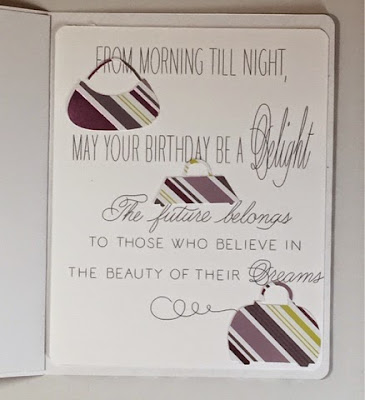 FROM MORNING TILL NIGHT,
MAY YOUR BIRTHDAY BE A Delight
The future belongs
TO THOSE WHO BELIEVE IN
THE BEAUTY OF THEIR Dreams